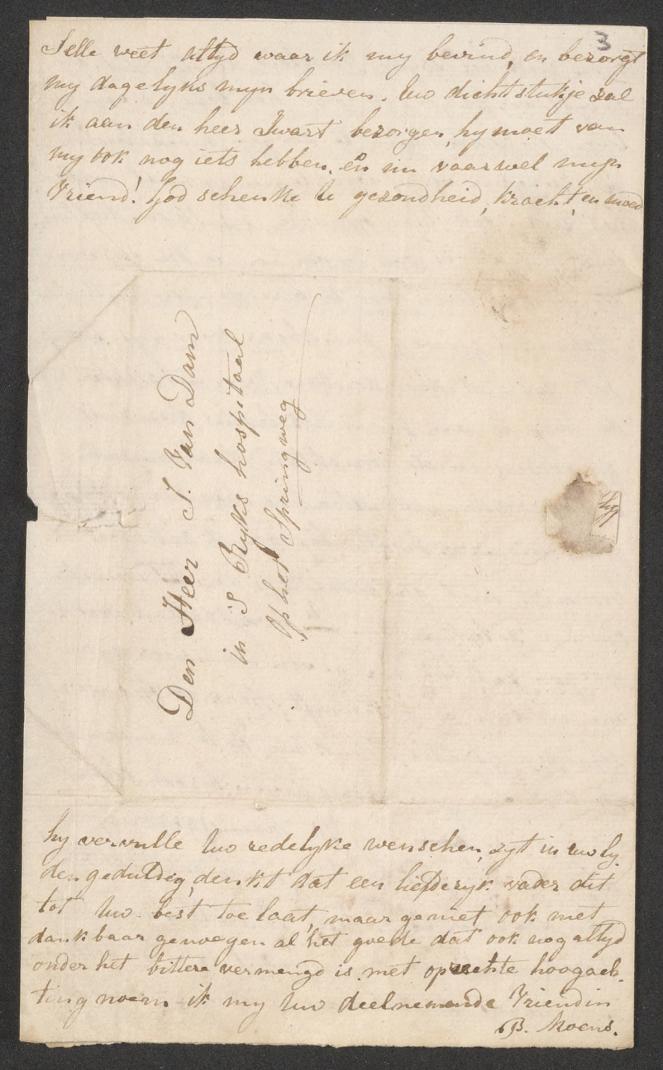 3
Jelle weet altyd waar ik my bevind, en bezorgt
my dagelyks myn brieven. Uw dichtstukje zal
ik aan den heer Swart bezorgen, hy moet van
my ook nog iets hebben, en nu vaarwel myn
Vriend! God schenke U gezondheid, kracht, en moed
Den Heer S. Van Dam
in 'S Ryks hospitaal
Op het Springweg
hy vervulle Uw redelyke wenschen, zyt in uw ly
den geduldig, denkt dat een liefderyk vader dit
tot Uw best toe laat, maar geniet ook met
dankbaar genoegen al het goede dat ook nog altyd
onder het bittere vermengd is, met oprechte hoogach-
ting noem ik my Uw deelnemende Vriendin
B. Moens.